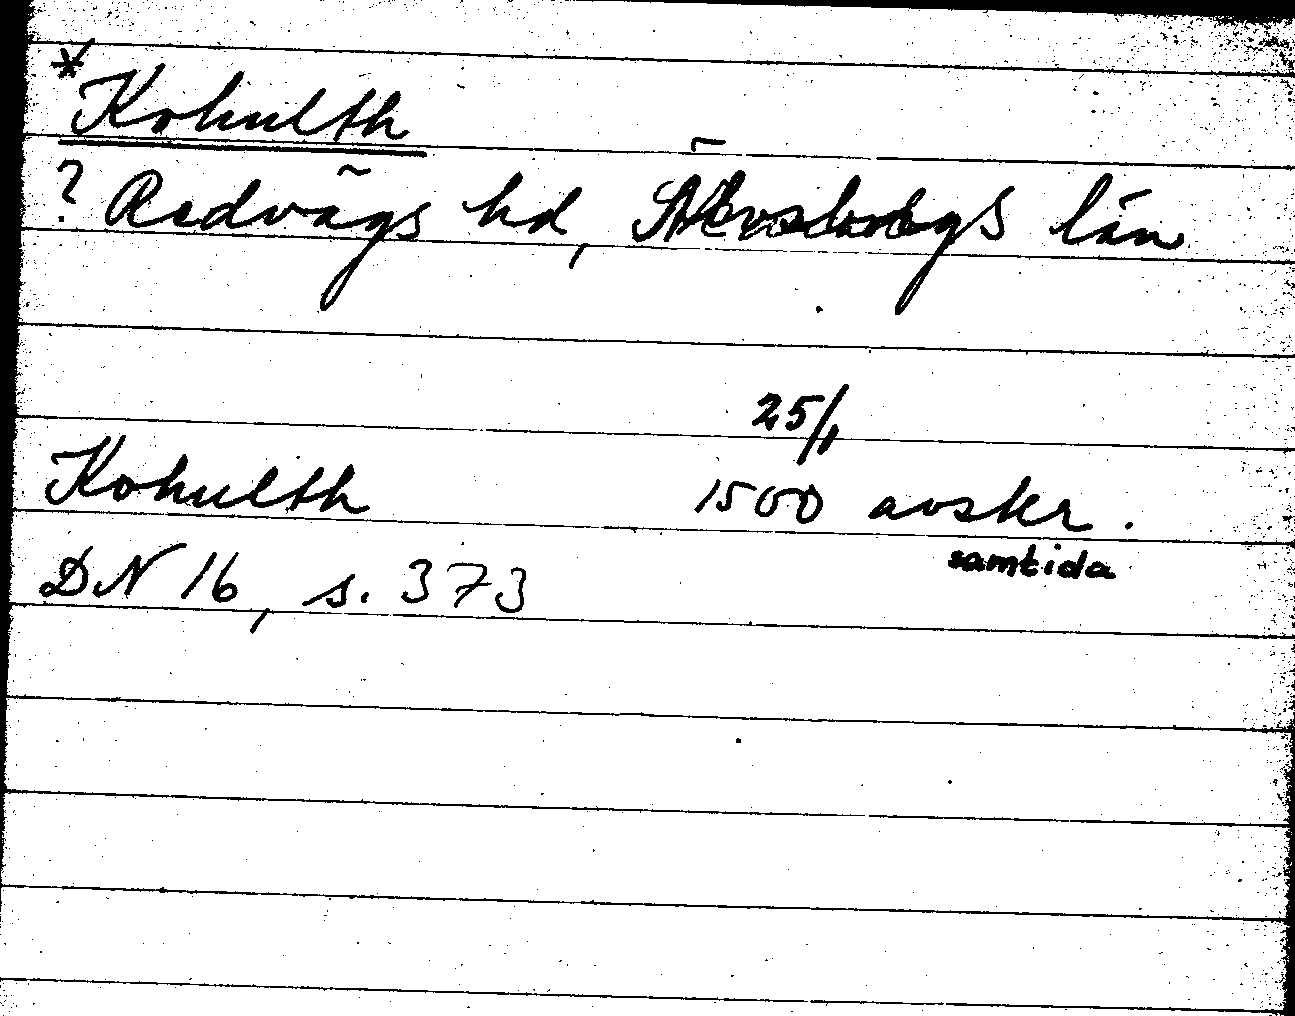 *Kohulth
? Redvägs hd, Älvsborgs län
25/1
Kohulth 1500 avskr.
samtida
DN 16, s. 373